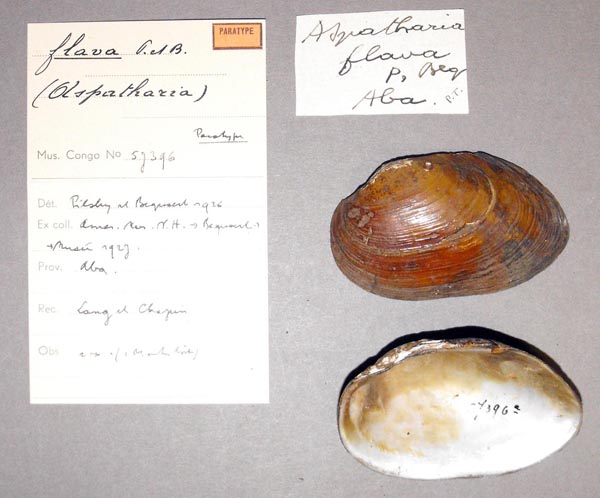 PARATYPE
flava P. et B.
(Aspatharia)
Paratype
Mus. Congo No 57396
Dét. Pilsbry et Bequaert 1926
Ex coll. Amer. Mus. N.H. → Bequaert →
→ Musée 1927
Prov. Aba.
Rec. Lang et Chapin
Obs
Aspatharia
flava
P, Beq
Aba. P.T.